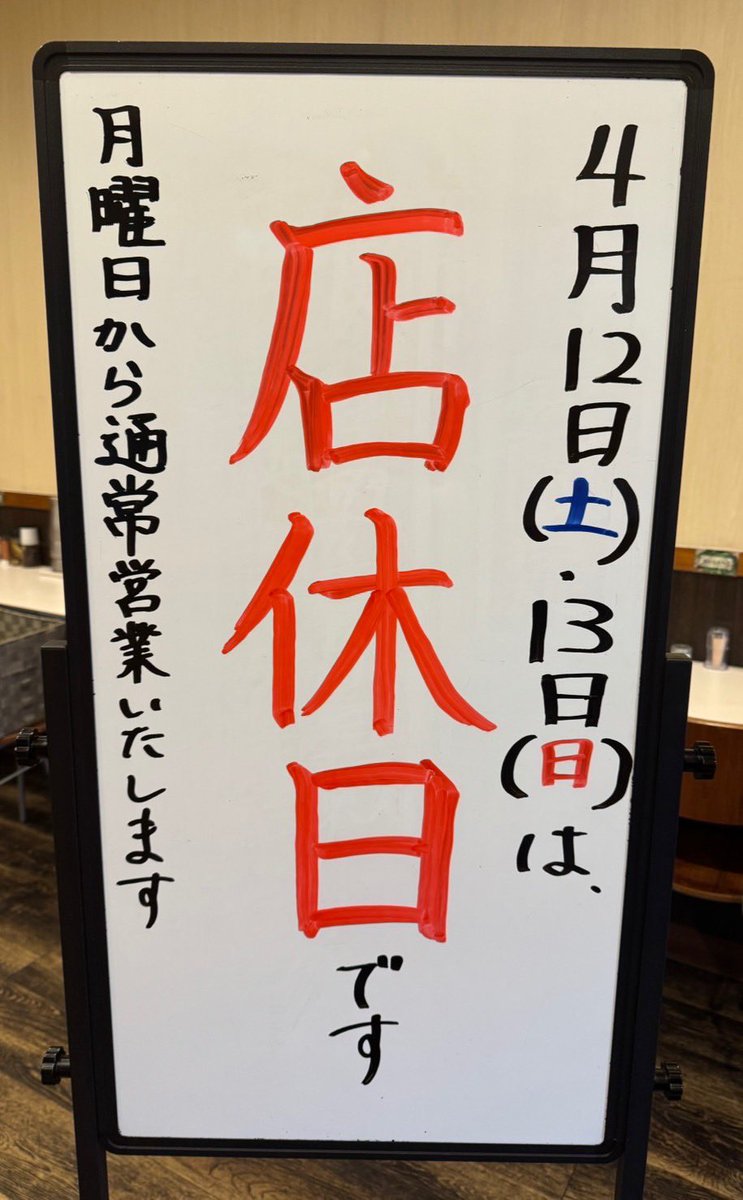 4月12日(土)・13日(日)は、
店休日です
月曜日から通常営業いたします